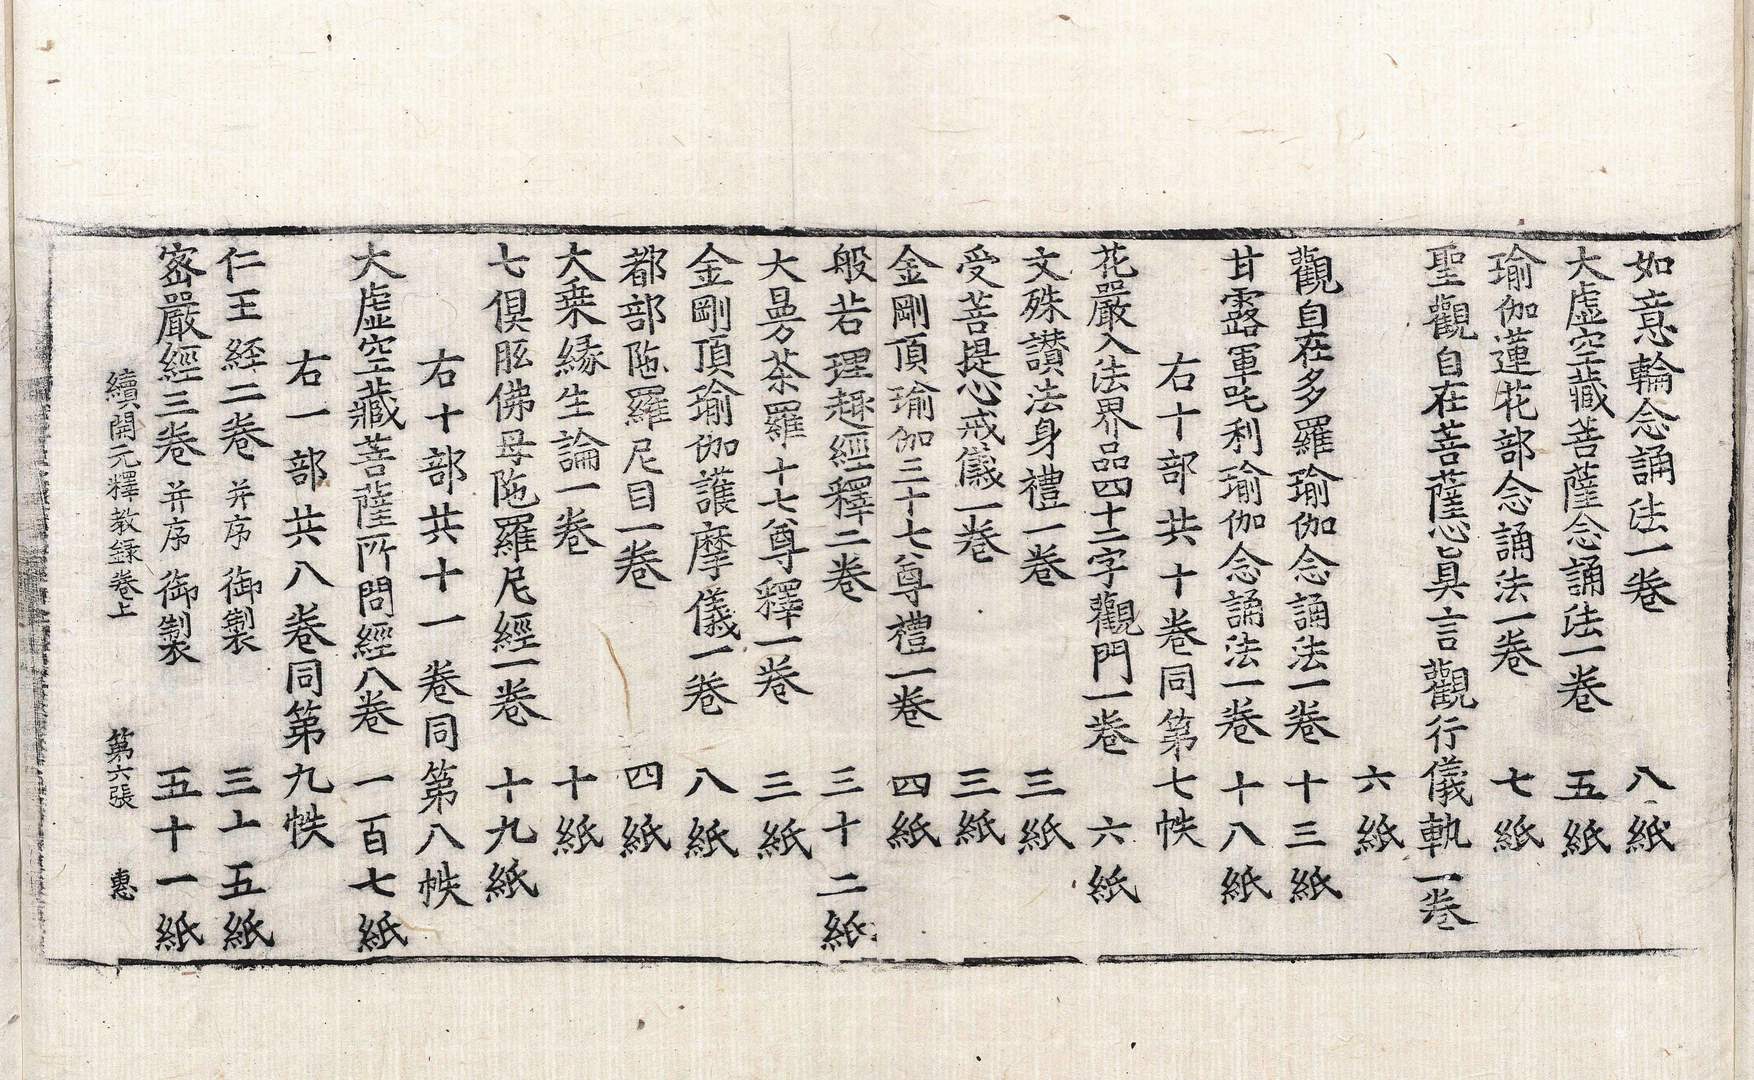 如意輪念誦法一卷 八紙
大虛空藏菩薩念誦法一卷 五紙
瑜伽蓮花部念誦法一卷 七紙
聖觀自在菩薩心真言觀行儀軌一卷
六紙
觀自在多羅瑜伽念誦法一卷 十三紙
甘露軍吒利瑜伽念誦法一卷 十八紙
右十部共十卷同第七帙
花嚴入法界品四十二字觀門一卷 六紙
文殊讚法身禮一卷 三紙
受菩提心戒儀一卷 三紙
金剛頂瑜伽三十七尊禮一卷 四紙
般若理趣經釋二卷 三十二紙
大曼荼羅十七尊釋一卷 三紙
金剛頂瑜伽護摩儀一卷 八紙
都部陁羅尼目一卷 四紙
大乗緣生論一卷 十紙
七俱胝佛母陁羅尼經一卷 十九紙
右十部共十一卷同第八帙
大虛空藏菩薩所問經八卷 一百七紙
右一部共八卷同第九帙
仁王經二卷 并序 御製 三十五紙
密嚴經三卷 并序 御製 五十一紙
續開元釋教錄卷上 第六張 惠